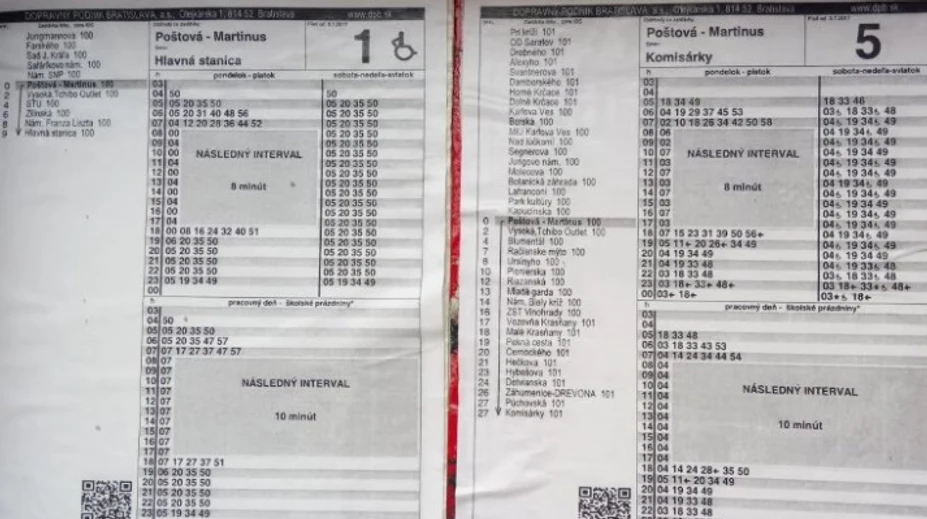 DOPRAVNÝ PODNIK BRATISLAVA, a.s., Olejkárska 1, 814 52 Bratislava www.dpb.sk
Jungmannova 100
Farského 100
Sad J. Kráľa 100
Šafárikovo nám. 100
Nám. SNP 100
0 Poštová - Martinus 100
2 Vysoká,Tchibo Outlet 100
4 STU 100
6 Žilinská 100
8 Nám. Franza Liszta 100
9 Hlavná stanica 100
Poštová - Martinus
Hlavná stanica
1
h pondelok - piatok sobota-nedeľa-sviatok
03
04 50 50
05 05 20 35 50 05 20 35 50
06 05 20 31 40 48 56 05 20 35 50
07 04 12 20 28 36 44 52 05 20 35 50
08 00 05 20 35 50
09 00 05 20 35 50
10 00 05 20 35 50
11 04 05 20 35 50
12 00 05 20 35 50
13 04 05 20 35 50
14 00 05 20 35 50
15 04 05 20 35 50
16 00 05 20 35 50
17 04 05 20 35 50
NÁSLEDNÝ INTERVAL
8 minút
18 00 08 16 24 32 40 51 05 20 35 50
19 06 20 35 50 05 20 35 50
20 05 20 35 50 05 20 35 50
21 05 20 35 50 05 20 35 50
22 05 20 35 50 05 20 35 50
23 05 19 34 49 05 19 34 49
00
h pracovný deň - školské prázdniny*
03
04 50
05 05 20 35 50
06 05 20 35 47 57
07 07 17 27 37 47 57
08 07
09 07
10 07
11 07
12 07
13 07
14 07
15 07
16 07
17 07
NÁSLEDNÝ INTERVAL
10 minút
18 07 17 27 37 51
19 06 20 35 50
20 05 20 35 50
21 05 20 35 50
22 05 20 35 50
23 05 19 34 49
DOPRAVNÝ PODNIK BRATISLAVA, a.s., Olejkárska 1, 814 52 Bratislava www.dpb.sk
Pri kríži 101
OD Saratov 101
Drobného 101
Alexyho 101
Švantnerova 101
Damborského 101
Horné Krčace 101
Dolné Krčace 101
Karlova Ves 100
Borská 100
MiÚ Karlova Ves 100
Nad lúčkami 100
Segnerova 100
Jurigovo nám. 100
Molecova 100
Botanická záhrada 100
Lafranconi 100
Park kultúry 100
Kapucínska 100
0 Poštová - Martinus 100
2 Vysoká,Tchibo Outlet 100
4 Blumentál 100
7 Račianske mýto 100
8 Ursínyho 100
10 Pionierska 100
12 Riazanská 100
13 Mladá garda 100
14 Nám. Biely kríž 100
16 ŽST Vinohrady 100
17 Vozovňa Krasňany 101
18 Malé Krasňany 101
19 Pekná cesta 101
20 Černockého 101
21 Hečkova 101
23 Hybešova 101
24 Detvianska 101
26 Záhumenice-DREVONA 101
27 Púchovská 101
27 Komisárky 101
Poštová - Martinus
Komisárky
5
h pondelok - piatok sobota-nedeľa-sviatok
03
04
05 18 34 49 18 33 48
06 04 19 29 37 45 53
07 02 10 18 26 34 42 50 58
08 06
09 02
10 07
11 03
12 07
13 03
14 07
15 03
16 07
17 03
NÁSLEDNÝ INTERVAL
8 minút
18 07 15 23 31 39 50 56+
19 05 11+ 20 26+ 34 49
20 04 19 34 49
21 04 19 33 48
22 03 18 33 48
23 03 18+ 33+ 48+
00 03+ 18+
h pracovný deň - školské prázdniny*
03
04
05 18 33 48
06 03 18 33 43 53
07 04 14 24 34 44 54
08 04
09 04
10 04
11 04
12 04
13 04
14 04
15 04
16 04
17 04
NÁSLEDNÝ INTERVAL
10 minút
18 04 14 24 28+ 35 50
19 05 11+ 20 34 49
20 04 19 34 49
21 04 19 33 48
22 03 18 33 48